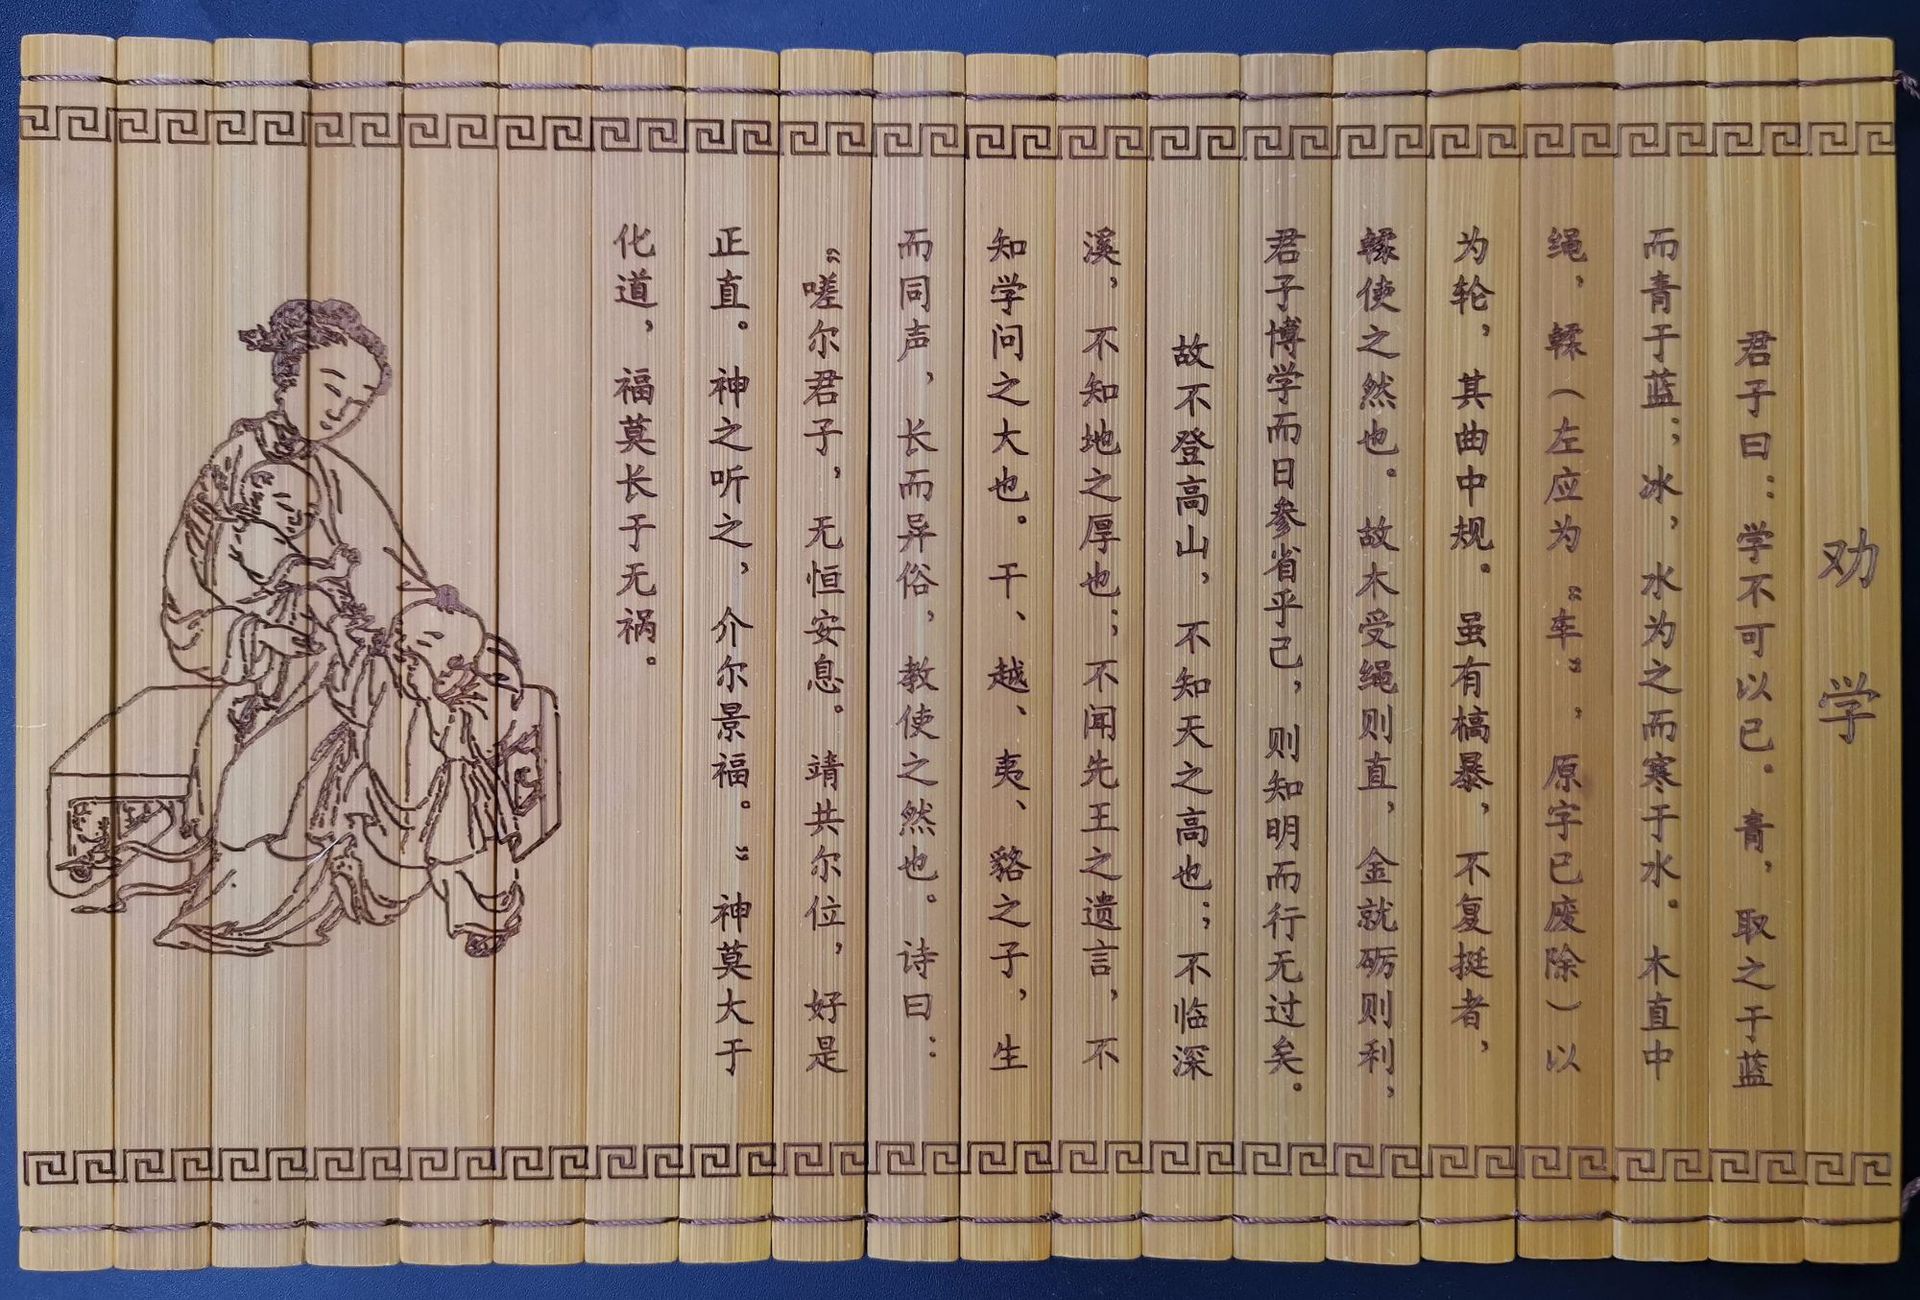 劝学
君子曰：学不可以已。青，取之于蓝
而青于蓝；冰，水为之而寒于水。木直中
绳，輮（左应为“车”，原字已废除）以
为轮，其曲中规。虽有槁暴，不复挺者，
輮使之然也。故木受绳则直，金就砺则利，
君子博学而日参省乎己，则知明而行无过矣。
故不登高山，不知天之高也；不临深
溪，不知地之厚也；不闻先王之遗言，不
知学问之大也。干、越、夷、貉之子，生
而同声，长而异俗，教使之然也。诗曰：
“嗟尔君子，无恒安息。靖共尔位，好是
正直。神之听之，介尔景福。”神莫大于
化道，福莫长于无祸。